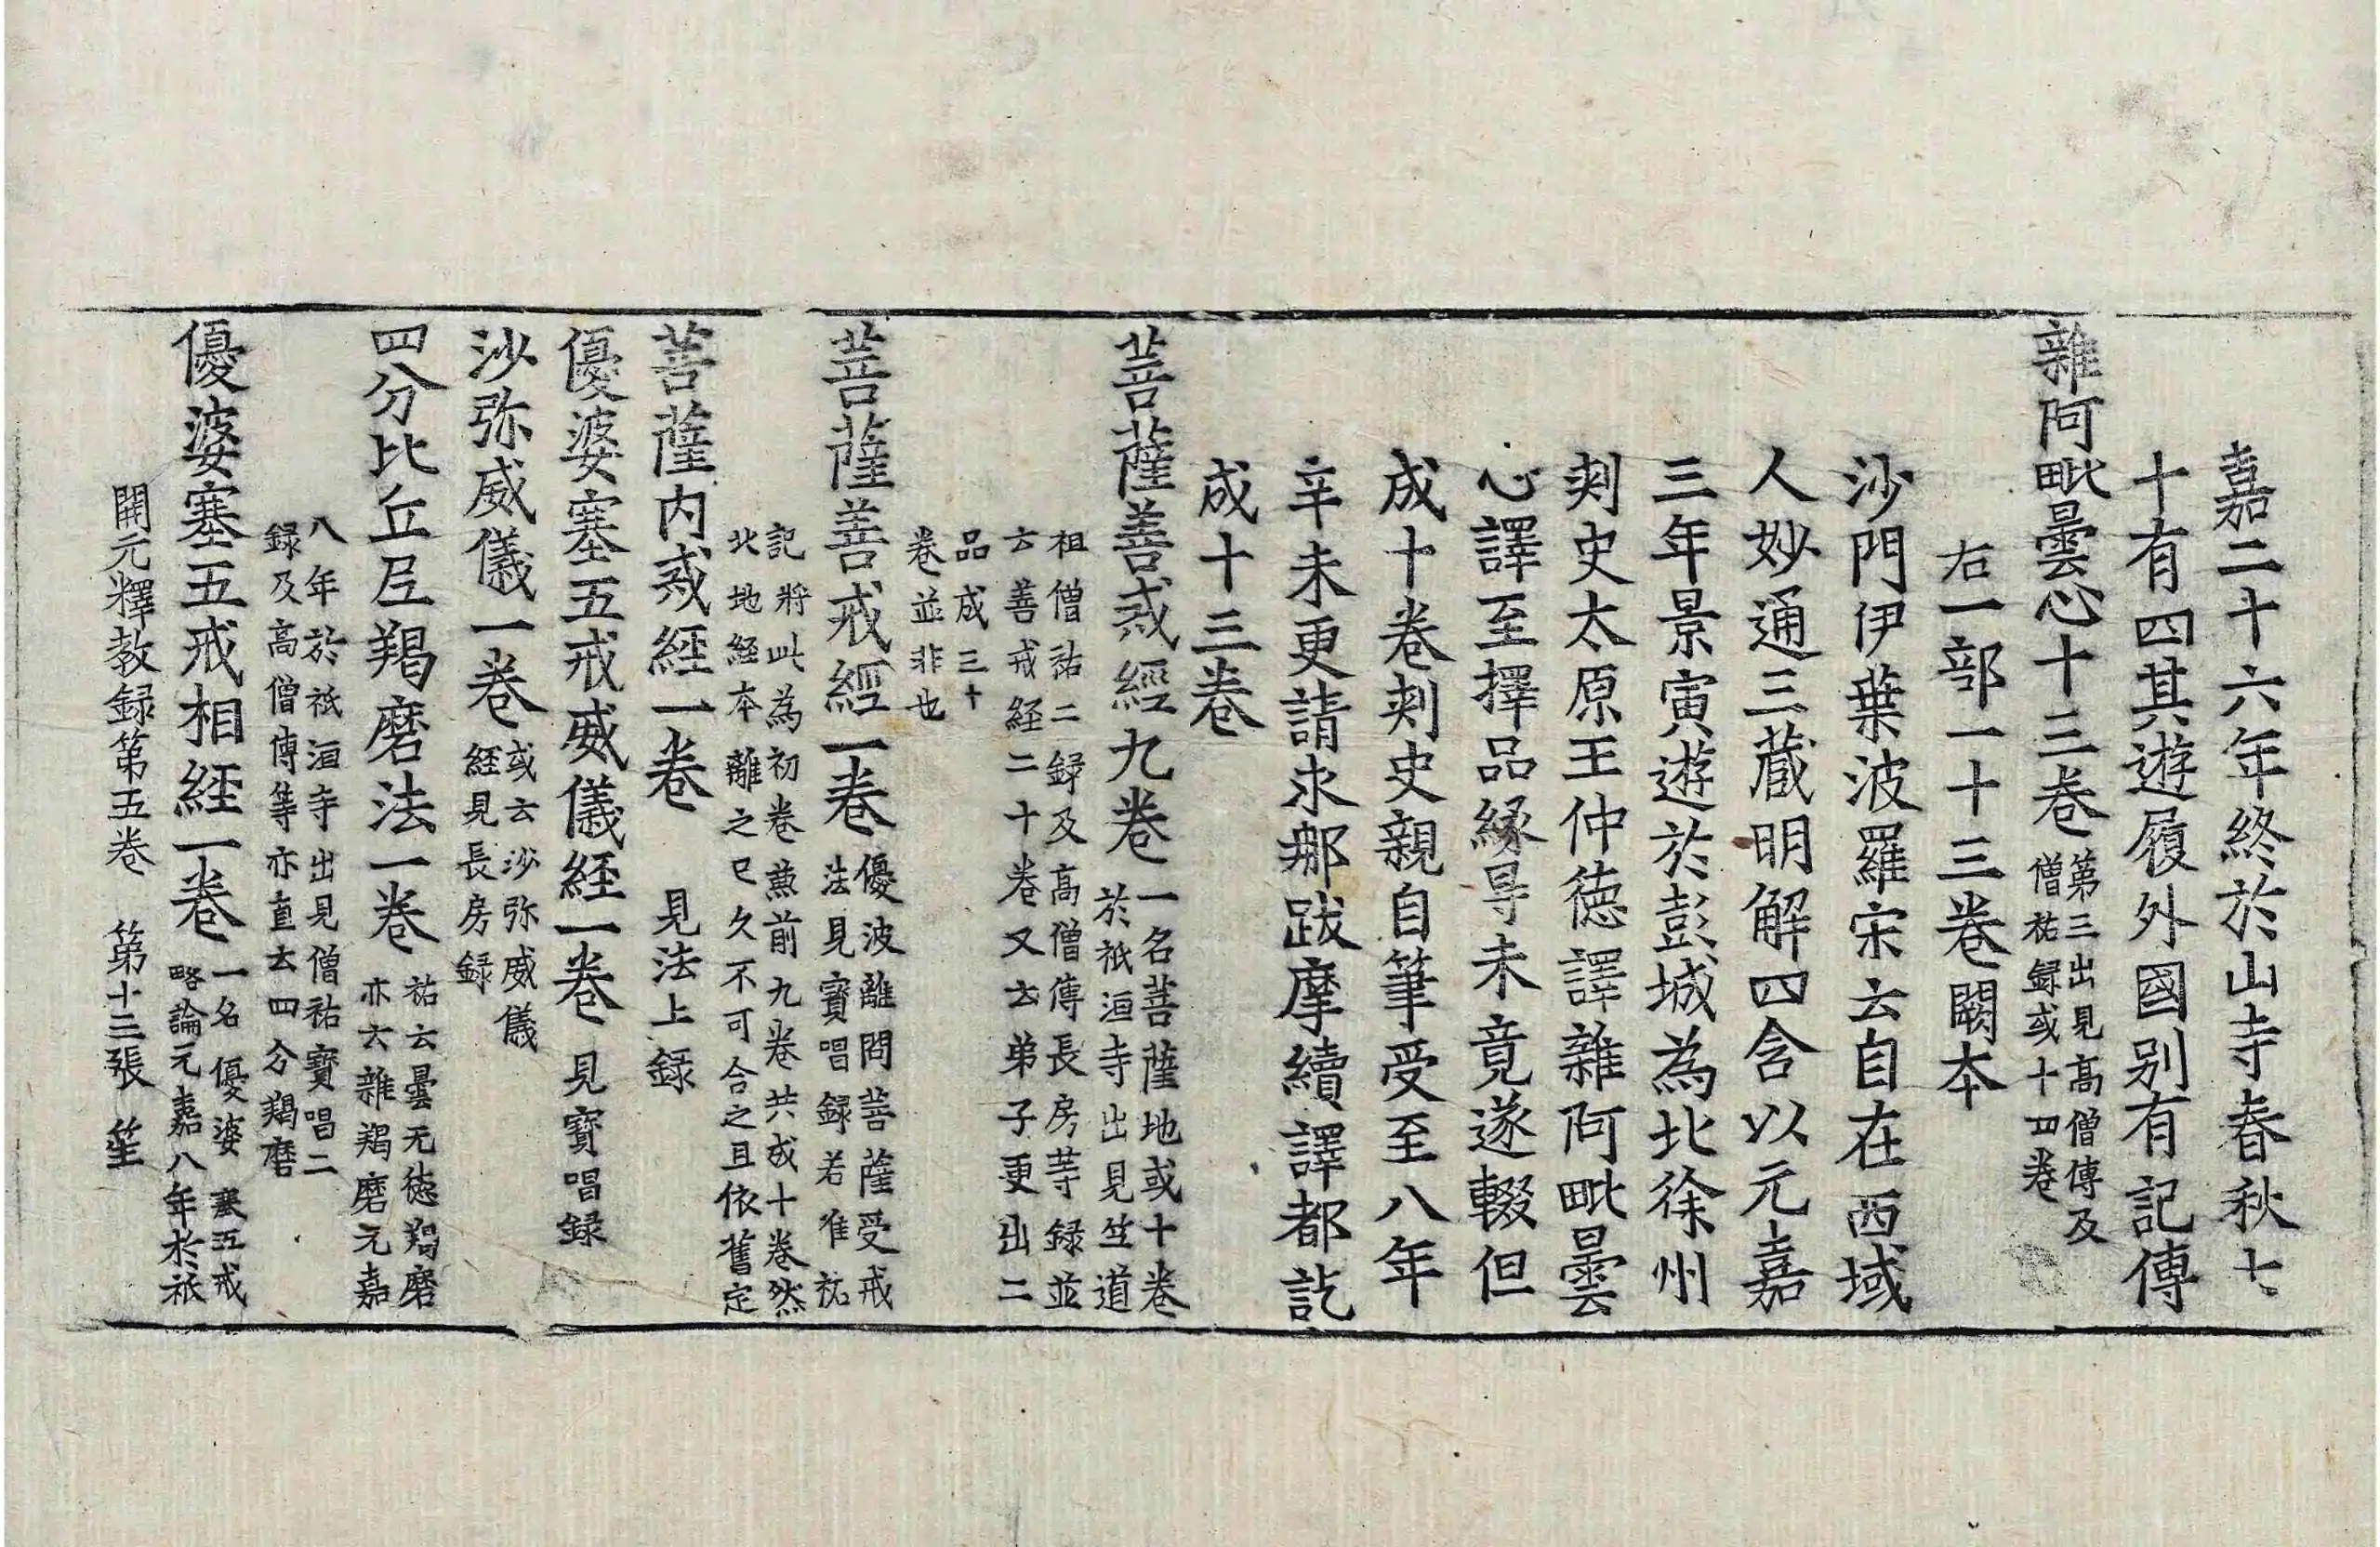 嘉二十六年終於山寺春秋七
十有四其遊履外國別有記傳
雜阿毗曇心十三卷第三出見高僧傳及
僧祐録或十四卷
右一部一十三卷闕本
沙門伊葉波羅宋云自在西域
人妙通三藏明解四含以元嘉
三年景寅遊於彭城為北徐州
刾史太原王仲德譯雜阿毗曇
心譯至擇品縁㝵未竟遂輟但
成十卷刾史親自筆受至八年
辛未更請求那跋摩續譯都訖
成十三卷
菩薩善戒經九卷一名菩薩地或十卷
於祇洹寺出見竺道
祖僧祐二録及高僧傳長房等録並
云善戒経二十卷又云弟子更出二
品成三十
卷並非也
菩薩善戒經一卷優波離問菩薩受戒
法見寶唱録若准祐
記將此為初卷兼前九卷共成十卷然
北地経本離之已久不可合之且依舊定
菩薩内戒経一卷 見法上録
優婆塞五戒威儀経一卷 見寶唱録
沙弥威儀一卷或云沙弥威儀
経見長房録
四分比丘尼羯磨法一卷祐云曇无德羯磨
亦云雜羯磨元嘉
八年於祇洹寺出見僧祐寶唱二
録及高僧傳等亦直云四分羯磨
優婆塞五戒相経一卷一名優婆塞五戒
略論元嘉八年於祇
開元釋教録第五卷 第十三張 笙